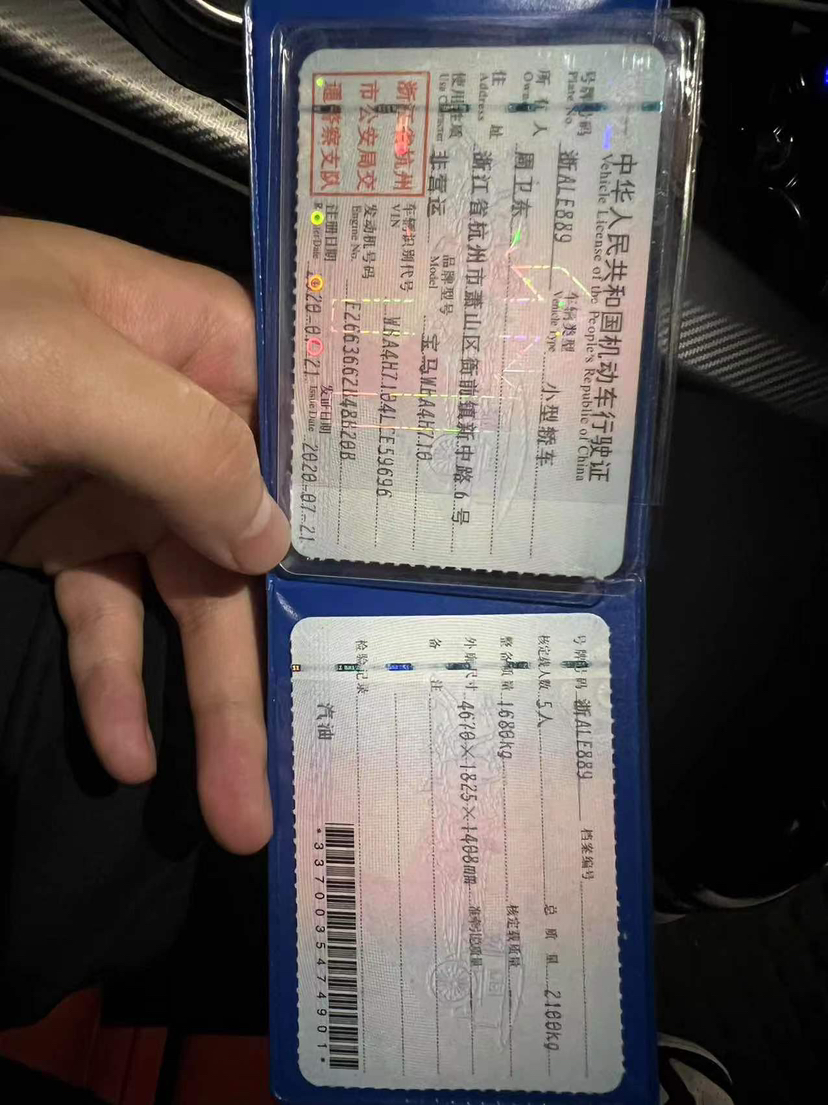 中华人民共和国机动车行驶证
Vehicle License of the People's Republic of China
号牌号码 浙ALE889 车辆类型 小型轿车
Plate No. Vehicle Type
所有人 周卫东
Owner
住址 浙江省杭州市萧山区衙前镇新中路6号
Address
使用性质 非营运 品牌型号 宝马WBA4H710
Use Character Model
浙江省杭州
市公安局交
通警察支队
车辆识别代号
VIN
发动机号码
Engine No.
注册日期 发证日期 2020-07-21
Register Date Issue Date
号牌号码 浙ALE889 档案编号
核定载人数 5人 总质量 2100kg
整备质量 1680kg 核定载质量
外廓尺寸 4670×1825×1408mm 准牵引总质量
备注
检验记录
汽油
*3370035474901*